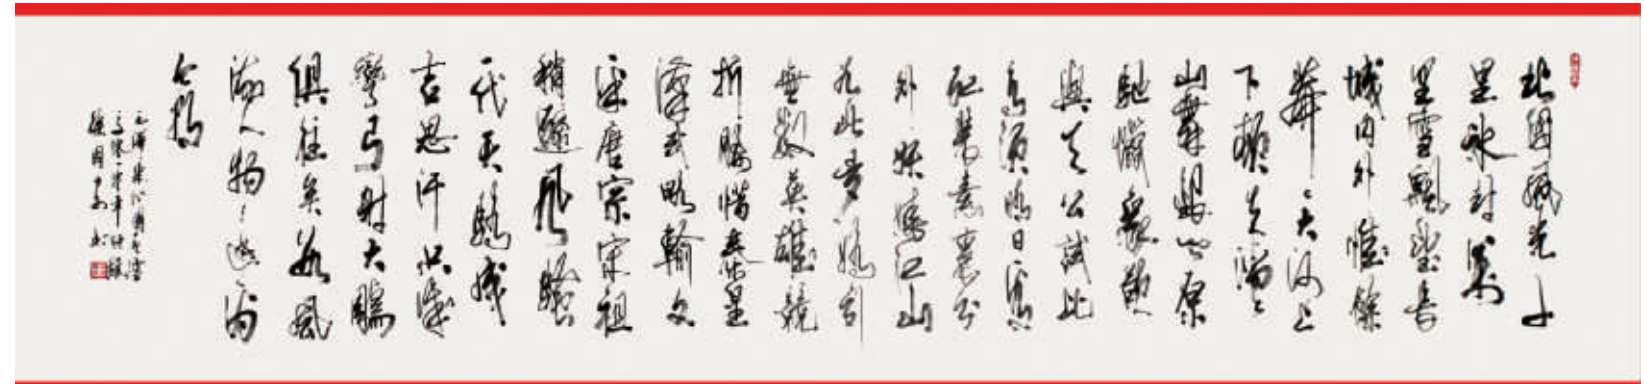 北國風光千
里冰封萬
里雪飄望長
城內外惟餘
莽々大河上
下頓失滔々
山舞銀蛇原
馳蠟象欲
與天公試比
高須晴日看
紅裝素裹分
外妖嬈江山
如此多嬌引
無數英雄競
折腰惜秦皇
漢武略輸文
采唐宗宋祖
稍遜風騷
一代天驕成
吉思汗只識
彎弓射大鵰
俱往矣數風
流人物還看
今朝
毛澤東沁園春雪